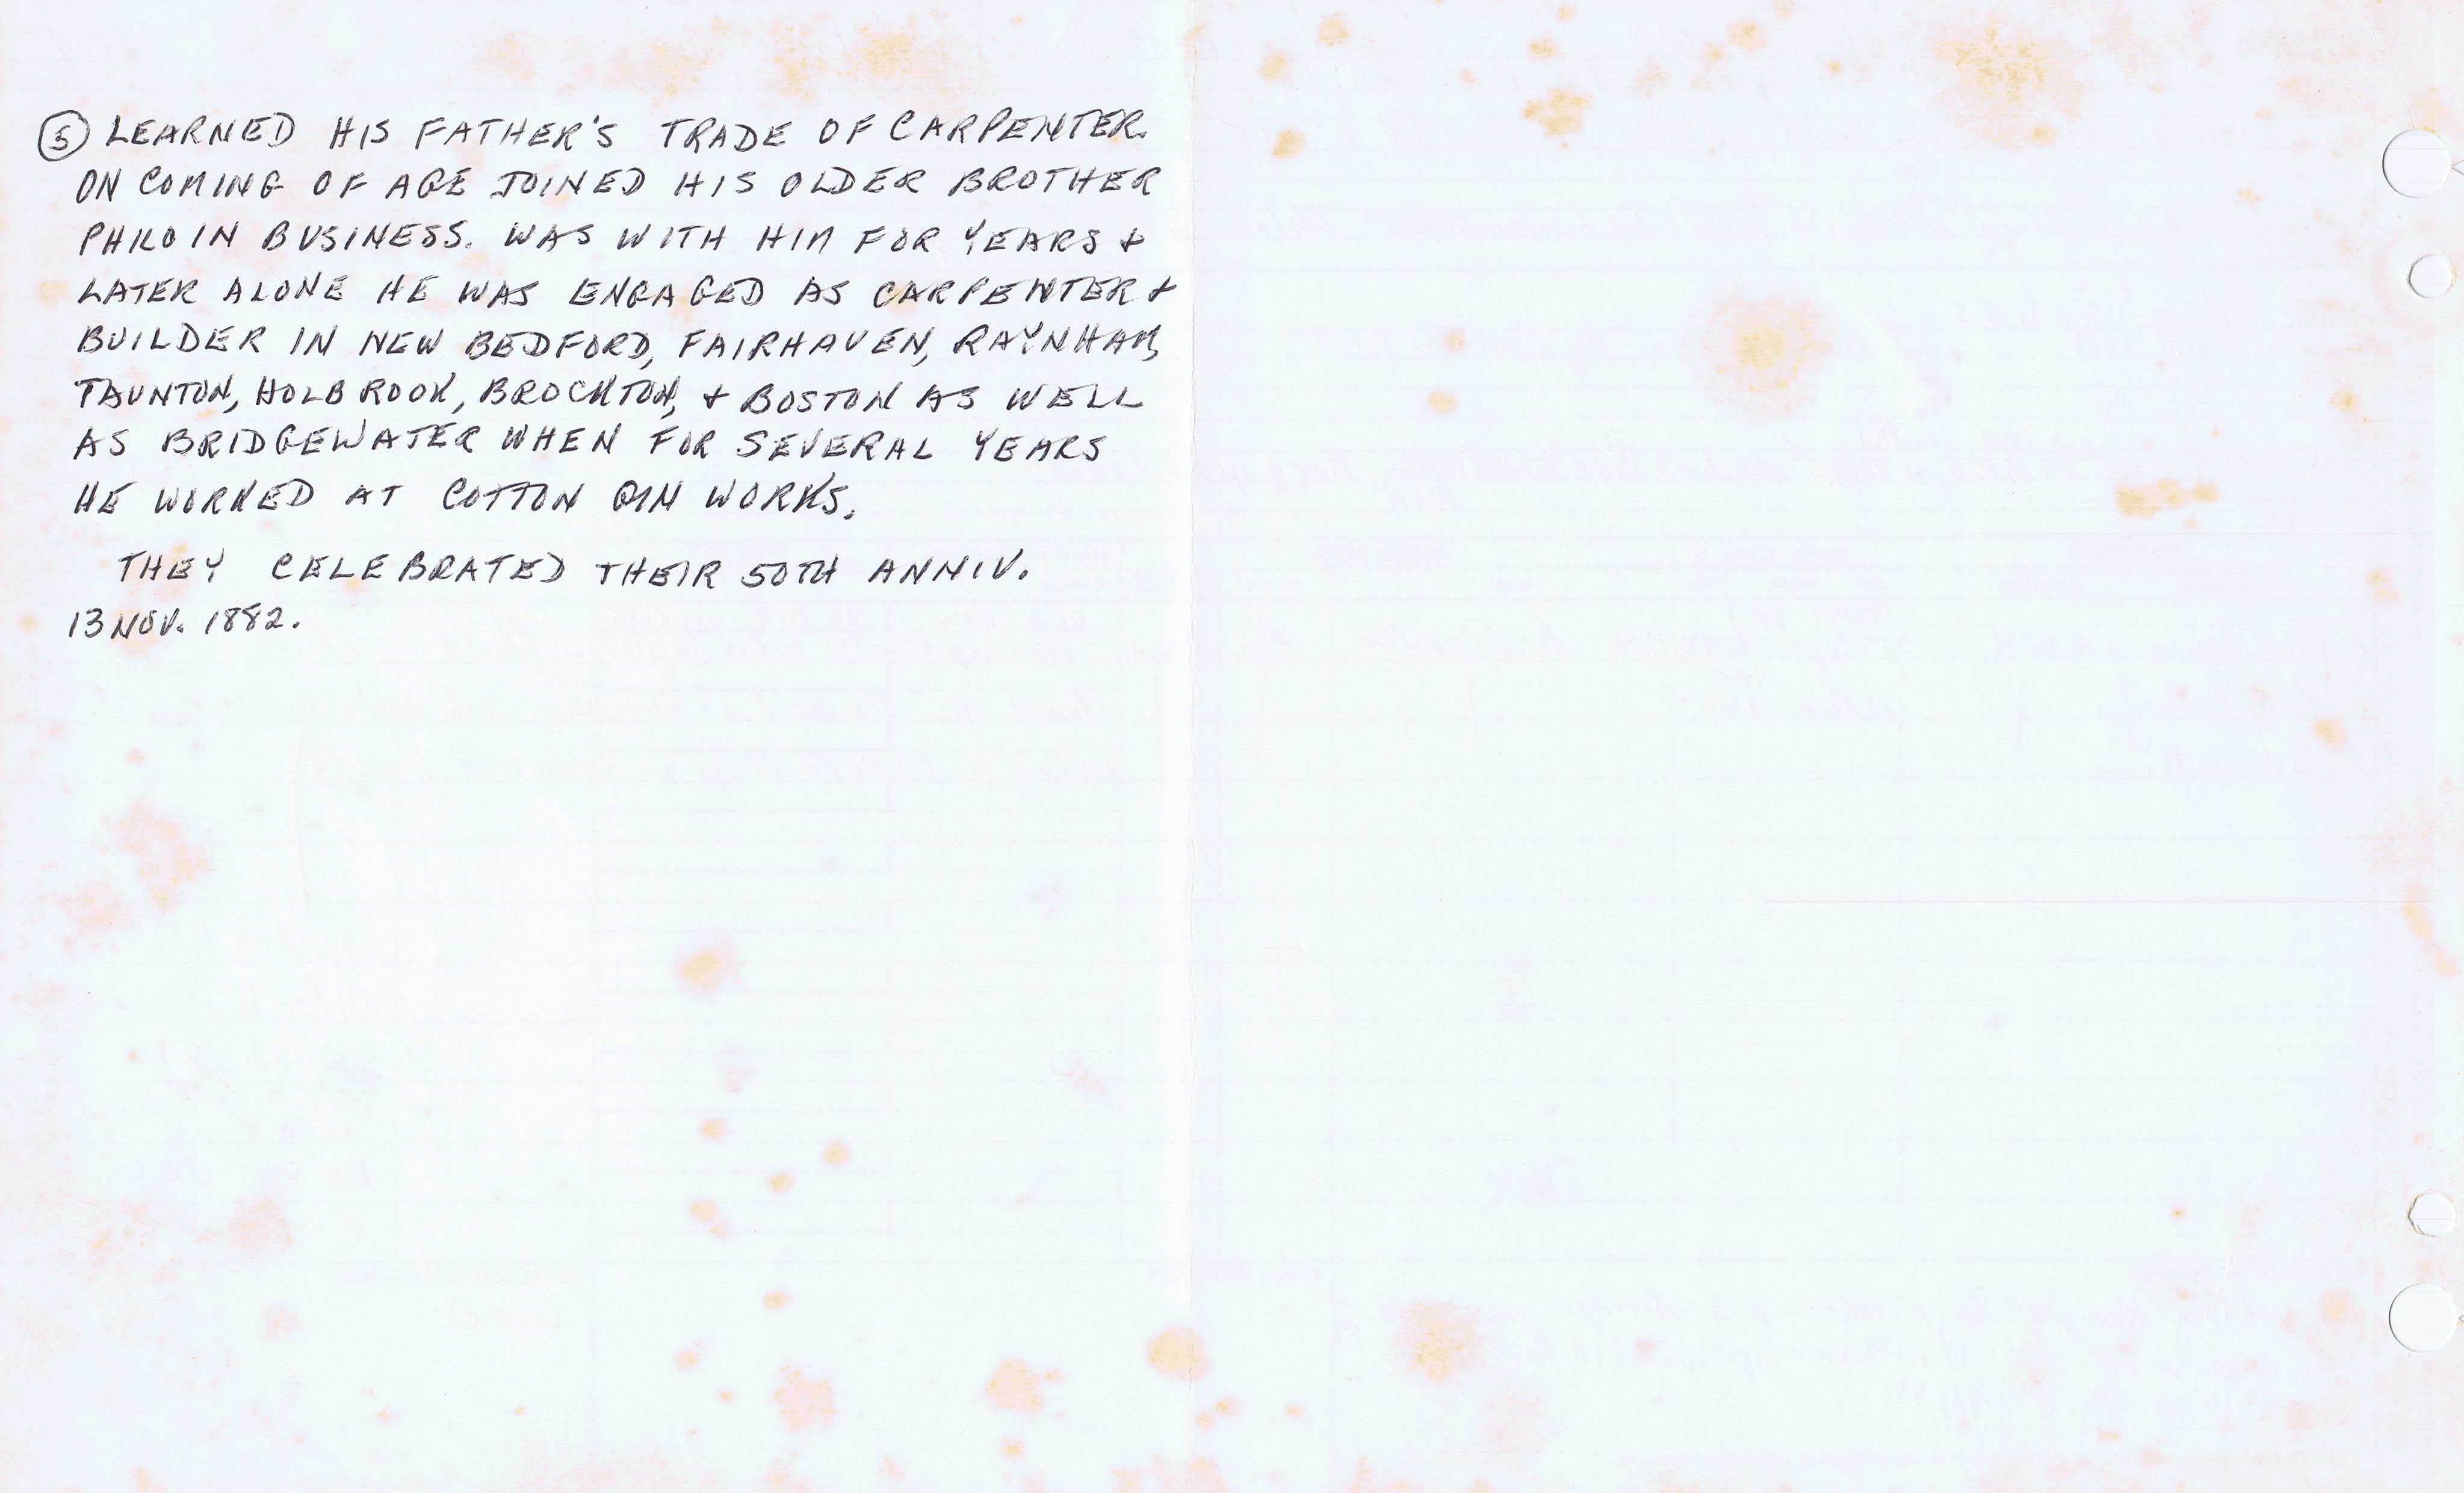 ⑤ LEARNED HIS FATHER'S TRADE OF CARPENTER.
ON COMING OF AGE JOINED HIS OLDER BROTHER
PHILO IN BUSINESS. WAS WITH HIM FOR YEARS &
LATER ALONE HE WAS ENGAGED AS CARPENTER &
BUILDER IN NEW BEDFORD, FAIRHAVEN, RAYNHAM,
TAUNTON, HOLBROOK, BROCKTON, & BOSTON AS WELL
AS BRIDGEWATER WHEN FOR SEVERAL YEARS
HE WORKED AT COTTON GIN WORKS.
THEY CELEBRATED THEIR 50TH ANNIV.
13 NOV. 1882.